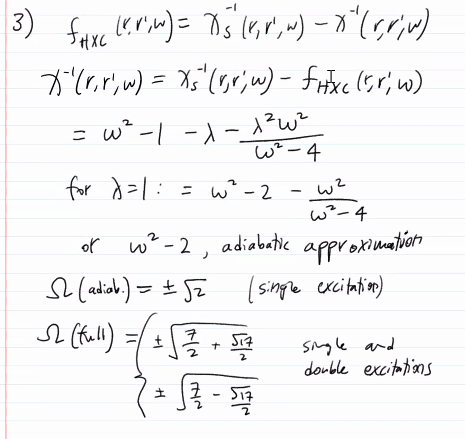 3) f_HXC (r,r',ω) = χ_s⁻¹ (r,r',ω) − χ⁻¹(r,r',ω)
χ⁻¹(r,r',ω) = χ_s⁻¹(r,r',ω) − f_HXC (r,r',ω)
= ω² − 1 − λ − λ²ω²/(ω² − 4)
for λ=1 : = ω² − 2 − ω²/(ω² − 4)
or ω² − 2 , adiabatic approximation
Ω (adiab.) = ± √2 (single excitation)
Ω (full) = { ± √(7/2 + √17/2) single and
± √(7/2 − √17/2) double excitations